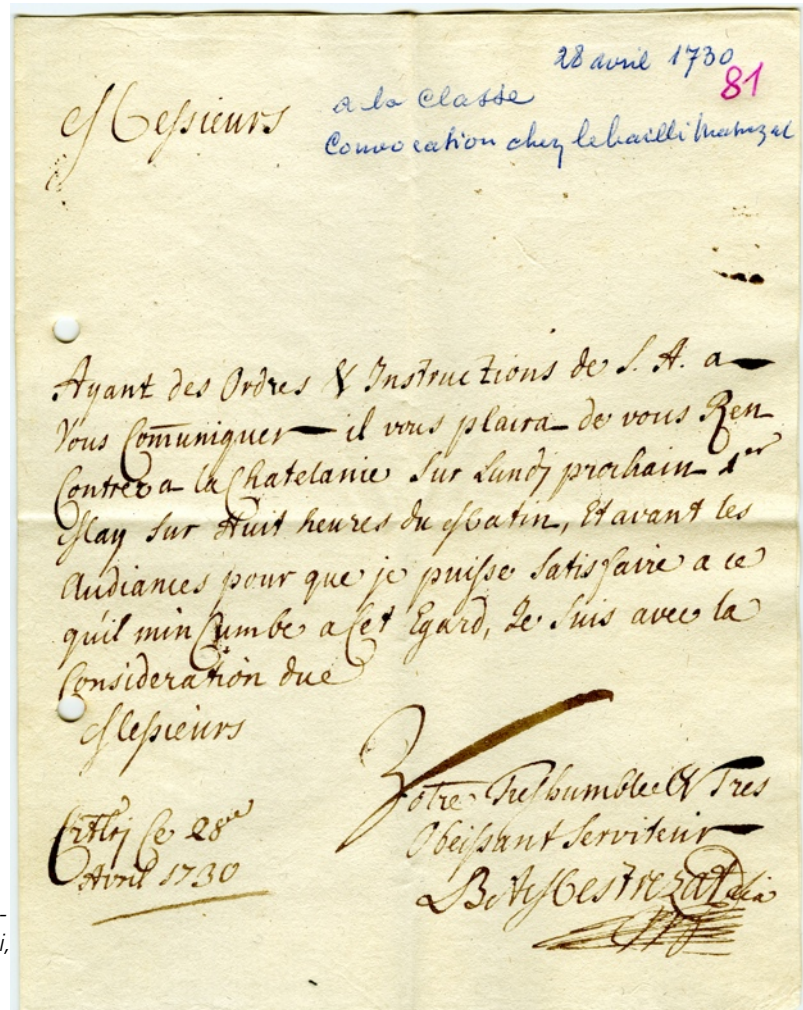 28 avril 1730
81
a la classe
Convocation chez le bailli Mestrezat
Messieurs
Ayant des Ordres & Instructions de S. A. a
Vous Com̄uniquer il vous plaira de vous Ren
Contrer a la Chatelanie sur Lundj prochain 1er
May sur Huit heures du Matin, Et avant les
Audiances pour que je puisse Satisfaire a ce
qu'il m'in Cumbe a Cet Egard, Je suis avec la
Consideration due
Messieurs
Votre Tres humble & Tres
Obeissant Serviteur
Mestrezat
Ce 28me
Avril 1730
i,